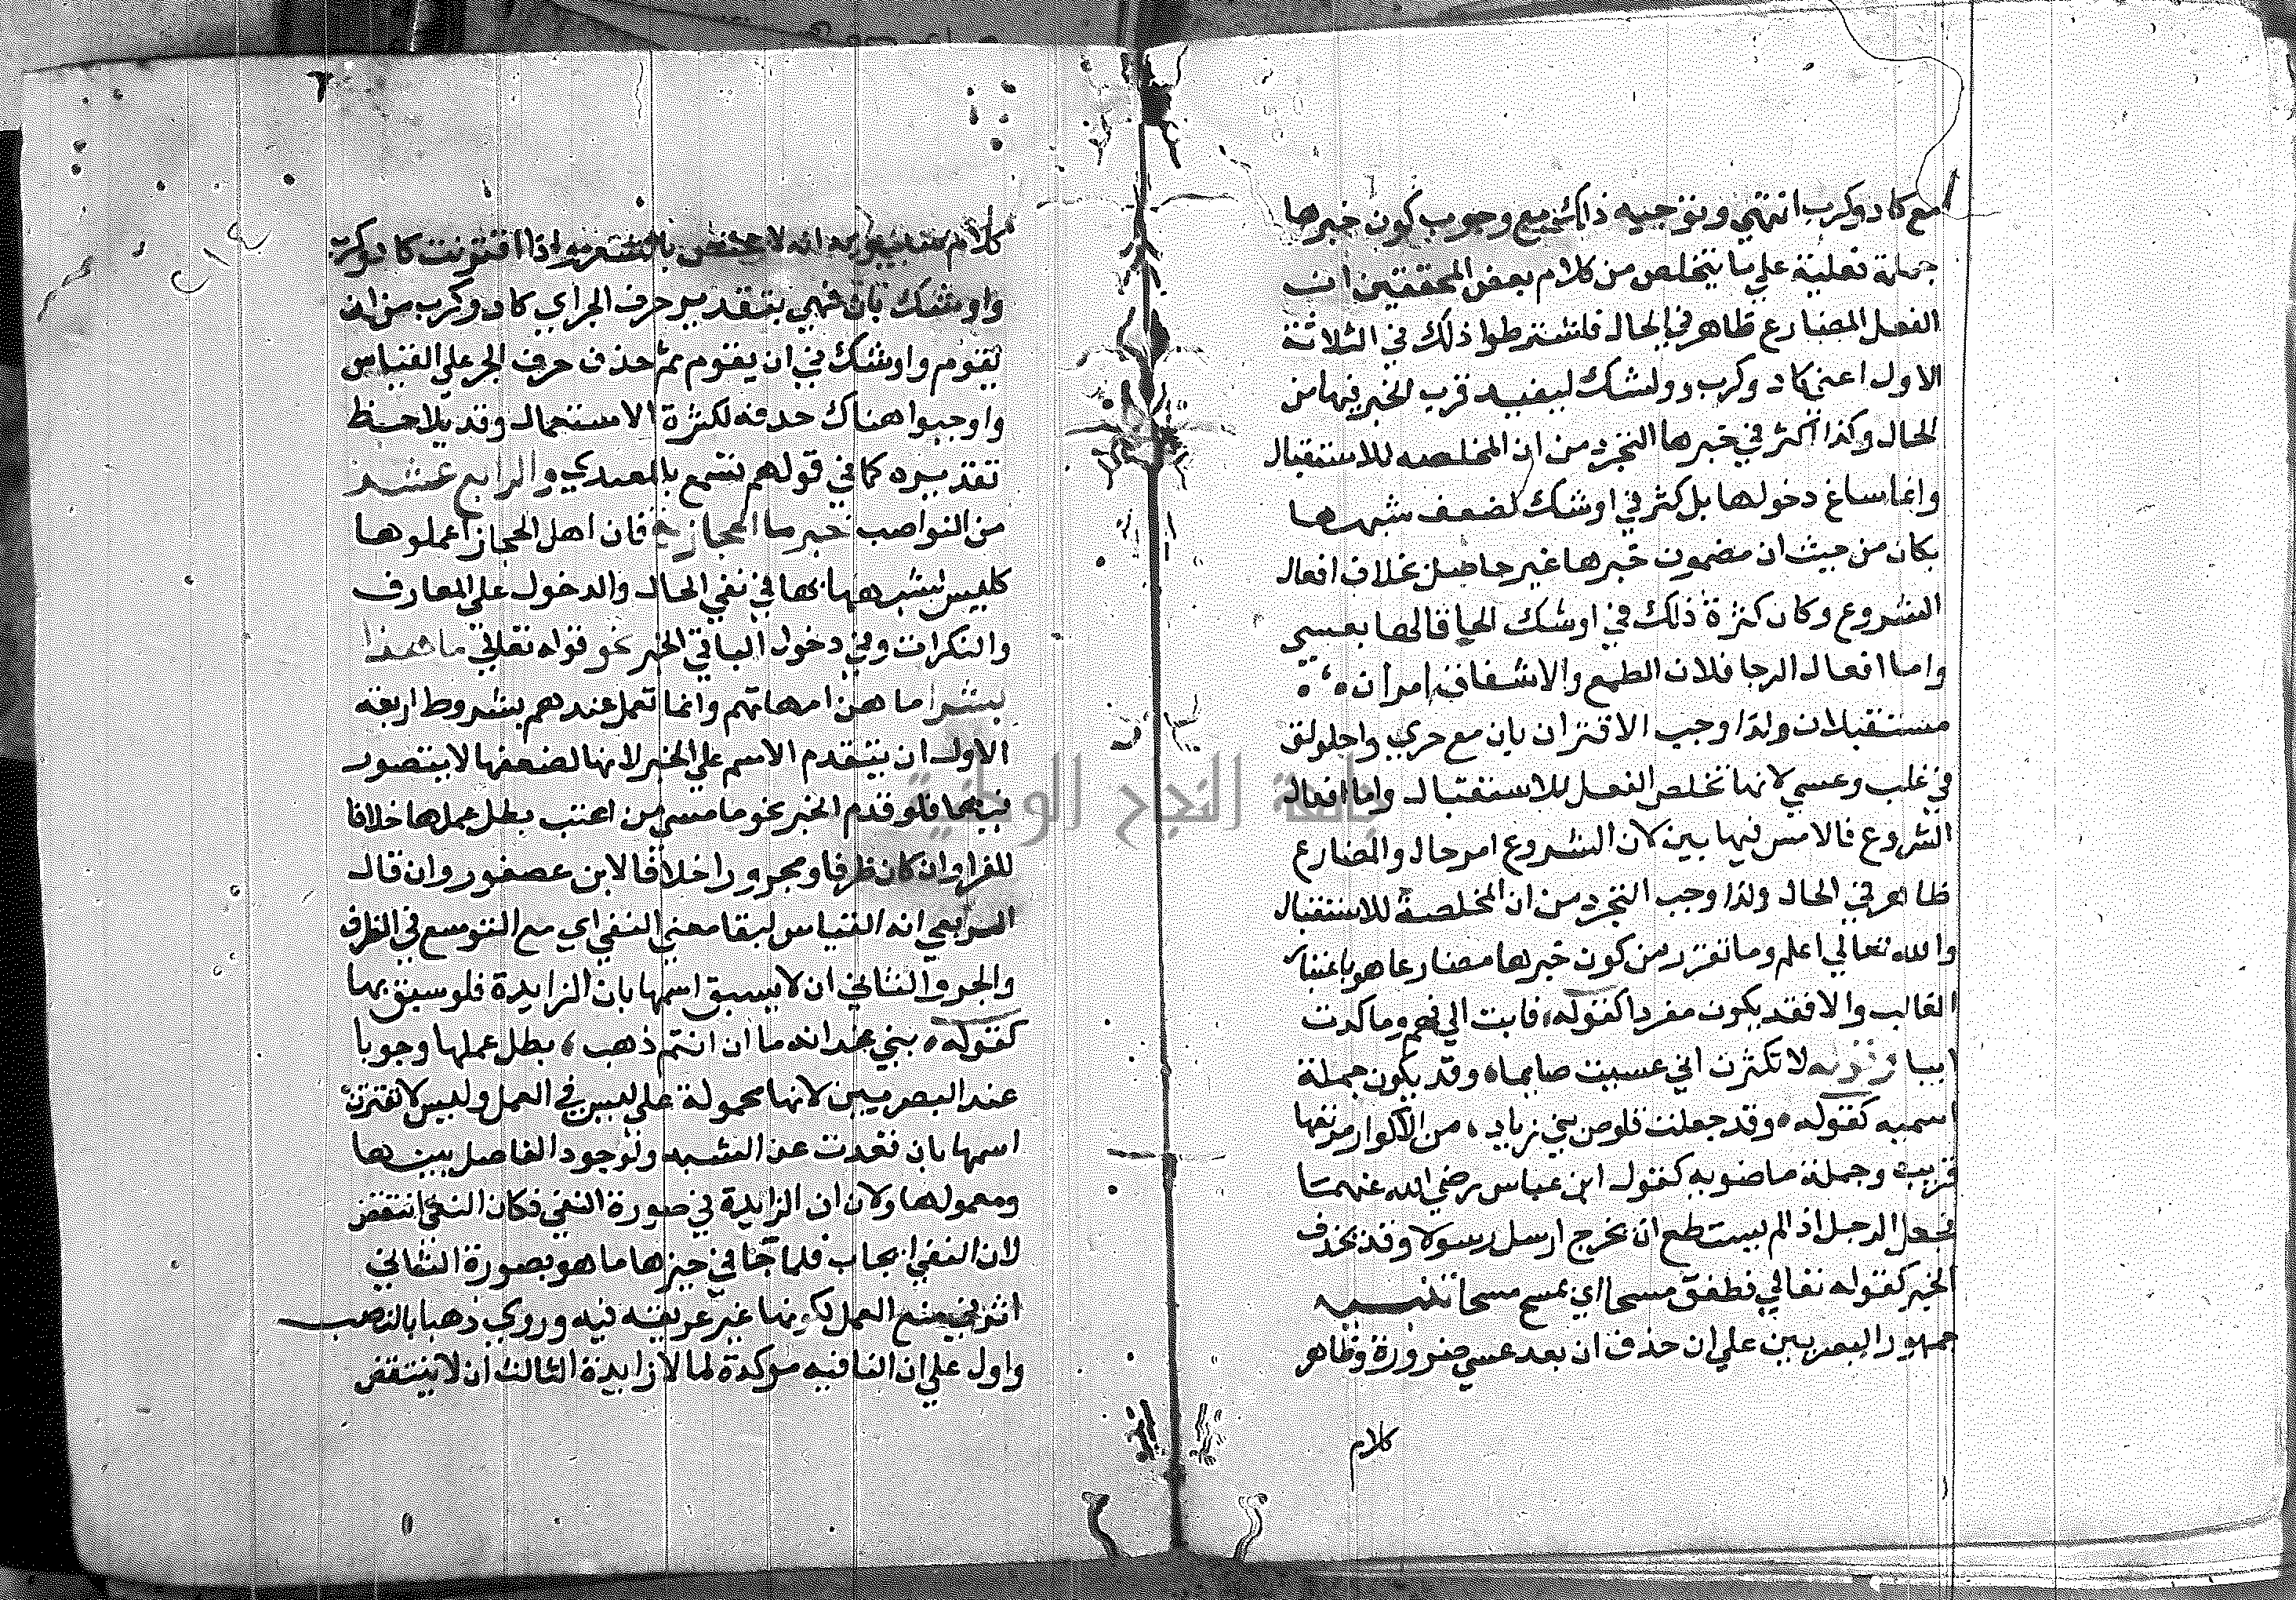 مع كاد وكرب انتهي وتوجيه ذلك مع وجوب كون خبرها
جملة فعلية علي ما يتخلص من كلام بعض المحققين ان
الفعل المضارع ظاهر في الحال فلشترطوا ذلك في الثلاثة
الاول اعني كاد وكرب ولشك ليفيد قرب الخبر فيها من
الحال وكذا اكثر في خبرها التجرد من ان المخلصه للاستقبال
وانما ساغ دخولها بل كثر في اوشك لضعف شبهها
بكان من حيث ان مضمون خبرها غير حاصل بخلاف افعال
الشروع وكان كثرة ذلك في اوشك الحاقا لها بعسي
واما افعال الرجا فلان الطمع والاشفاق امران
مستقبلان ولذا وجب الاقتران بان مع حري واحلولق
في غلب وعسي لانها تخلص الفعل للاستقبال واما افعال
الشروع فالامر فيها بين لان الشروع امر حال والمضارع
ظاهر في الحال ولذا وجب التجرد من ان المخلصة للاستقبال
والله تعالي اعلم وما تقرر من كون خبرها مضارعا هو باعتبار
الغالب والا فقد يكون مفردا كقوله فابت الي فهم وما كدت
ايبا وقوله لا تكثرن اني عسيت صايما وقد يكون جملة
اسميه كقوله وقد جعلت قلوص بني زياد من الاكوار مرتعها
قريب وجملة ماضويه كقول ابن عباس رضي الله عنهما
فجعل الرجل اذ الم يستطع ان يخرج ارسل رسولا وقد يحذف
الخبر كقوله تعالي فطفق مسحا اي يمسح مسحا تنبيه
جمهور البصريين علي ان حذف ان بعد عسي ضرورة وظاهر
كلام
كلام سيبويه انه لا يختص بالشعر واذا اقترنت كاد وكرب
واوشك بان فهي بتقدير حرف الجر اي كاد وكرب من ان
يقوم واوشك في ان يقوم ثم حذف حرف الجر علي القياس
واوجبوا هناك حذفه لكثرة الاستعمال وقد يلاحظ
تقديره كما في قولهم تسمع بالمعيدي والرابع عشر
من النواصب خبر ما الحجازية فان اهل الحجاز اعملوها
كليس لشبهها بها في نفي الحال والدخول علي المعارف
والنكرات وفي دخول الباء في الخبر نحو قوله تعالي ما هذا
بشرا ما هن امهاتهم وانما تعمل عندهم بشروط اربعة
الاول ان يتقدم الاسم علي الخبر لانها لضعفها لا يتصور
فيها فلو قدم الخبر نحو ما مسي من اعتب بطل عملها خلافا
للفرا وان كان ظرفا او مجرورا خلافا لابن عصفور وان قال
انه القياس لبقا معني النفي اي مع التوسع في الظرف
والجرور الثاني ان لا يسبق اسمها بان الزايدة فلو سبق بها
كقوله بني غدانه ما ان انتم ذهب بطل عملها وجوبا
عند البصريين لانها محمولة علي ليس في العمل وليس لا تقترن
اسمها بان فبعدت عن الشبه ولوجود الفاصل بينها
ومعمولها ولان ان الزايدة في صورة النفي فكان النفي انتقض
لان النفي ايجاب فلما جا في حيزها ما هو بصورة الثاني
اثر في منع العمل لكونها غير عريقه فيه وروي ذهبا بالنصب
واول علي ان النافيه موكدة لما لا زايدة الثالث ان لا ينتقض
جامعة النجاح الوطنية